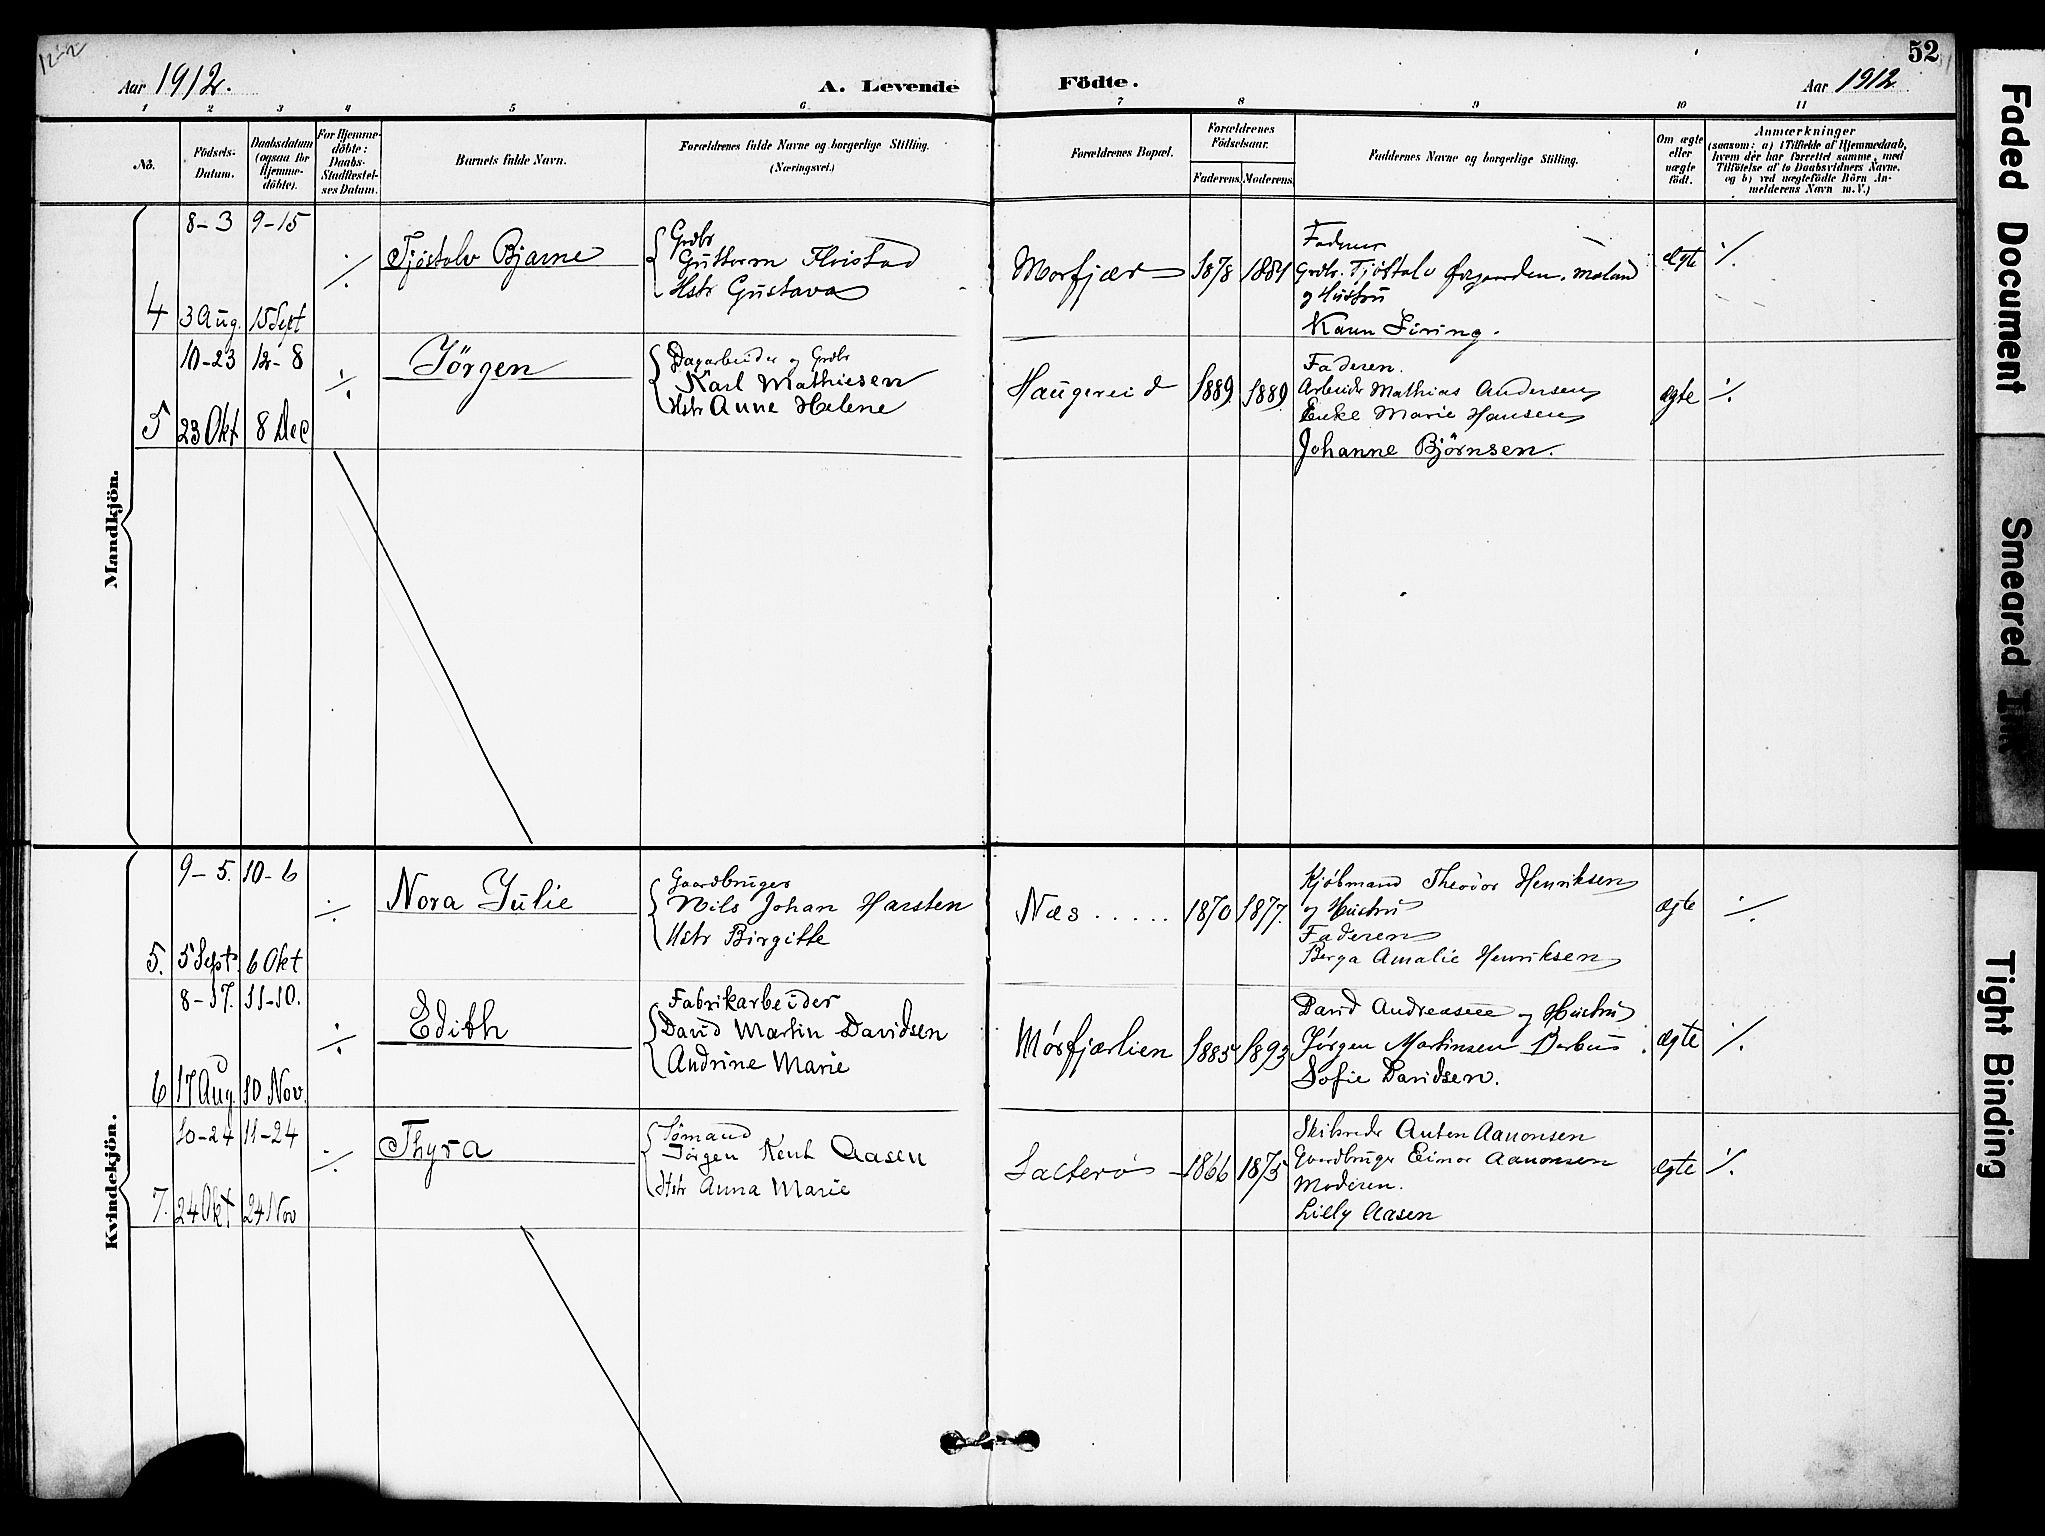 12-2
Aar 1912.
A. Levende
Födte.
52
Aar 1912
1 2 3 4 5 6 7 8 9 10 11
No.
Födsels-
Datum.
Daabsdatum
(ogsaa for
Hjemme-
döbte).
For Hjemme-
döbte:
Daabs-
Stadfestel-
ses Datum.
Barnets fulde Navn.
Forældrenes fulde Navne og borgerlige Stilling.
(Næringsvei.)
Forældrenes Bopæl.
Forældrenes
Födselsaar.
Faderens. Moderens.
Faddernes Navne og borgerlige Stilling.
Om ægte
eller
uægte
födt.
Anmærkninger
(saasom: a) i Tilfælde af Hjemmedaab,
hvem der har forrettet samme, med
Tilföielse af to Daabsvidners Navne,
og b) ved uægtefödte Börn An-
melderens Navn m. V.)
Mandkjön.
4
8-3
3 Aug.
9-15
15 Sept
Tjöstolv Bjarne
Grdbr
Gutterm
Hstr Gustava
Morfjær
1878 1881
Grdbr. Tjöstolv
og Hustru
ægte
5
10-23
23 Okt
12-8
8 Dec
Jörgen
Dagarbeider og Grdbr
Karl Mathiesen
Hstr Anne Helene
Haugereid
1889 1889
Faderen.
Arbeider Mathias Andersen
Enke Marie Hansen
Johanne Björnsen.
ægte
Kvindekjön.
5.
9-5.
5 Sept.
10-6
6 Okt
Nora Julie
Gaardbruger
Nils Johan Harsten
Hstr Birgitte
Næs .....
1870 1877.
Kjöbmand Theodor Henriksen
og Hustru
Faderen
Berga Amalie Henriksen
ægte
6
8-17.
17 Aug.
11-10.
10 Nov.
Edith
Fabrikarbeider
David Martin Davidsen
Andrine Marie
Mørfjærlien
1885 1893
David Andreasen og Hustru
Jørgen Martinsen
Sofie Davidsen.
ægte
7.
10-24
24 Okt
11-24
24 Nov
Thyra
Sømand
Jörgen Kent Aasen
Hstr Anna Marie
1866 1875
Anton Aanonsen
Gaardbruger Einar Aanonsen
Moderen.
Lilly Aasen
ægte
Faded Document
Smeared Ink
Tight Binding